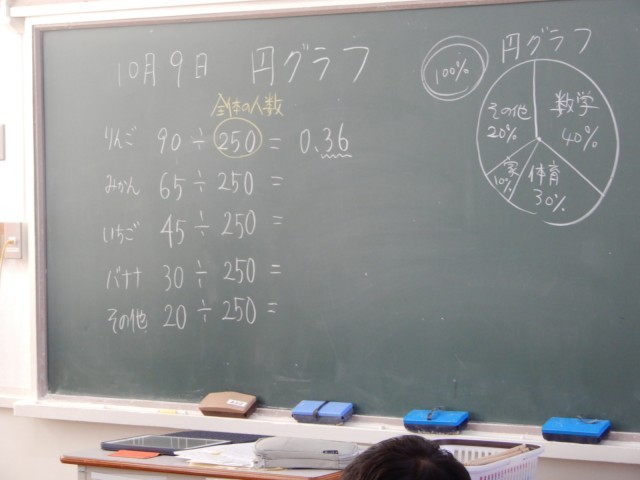 10月9日 円グラフ
全体の人数
りんご 90 ÷ 250 = 0.36
みかん 65 ÷ 250 =
いちご 45 ÷ 250 =
バナナ 30 ÷ 250 =
その他 20 ÷ 250 =
100%
円グラフ
数学
40%
体育
30%
家
10%
その他
20%